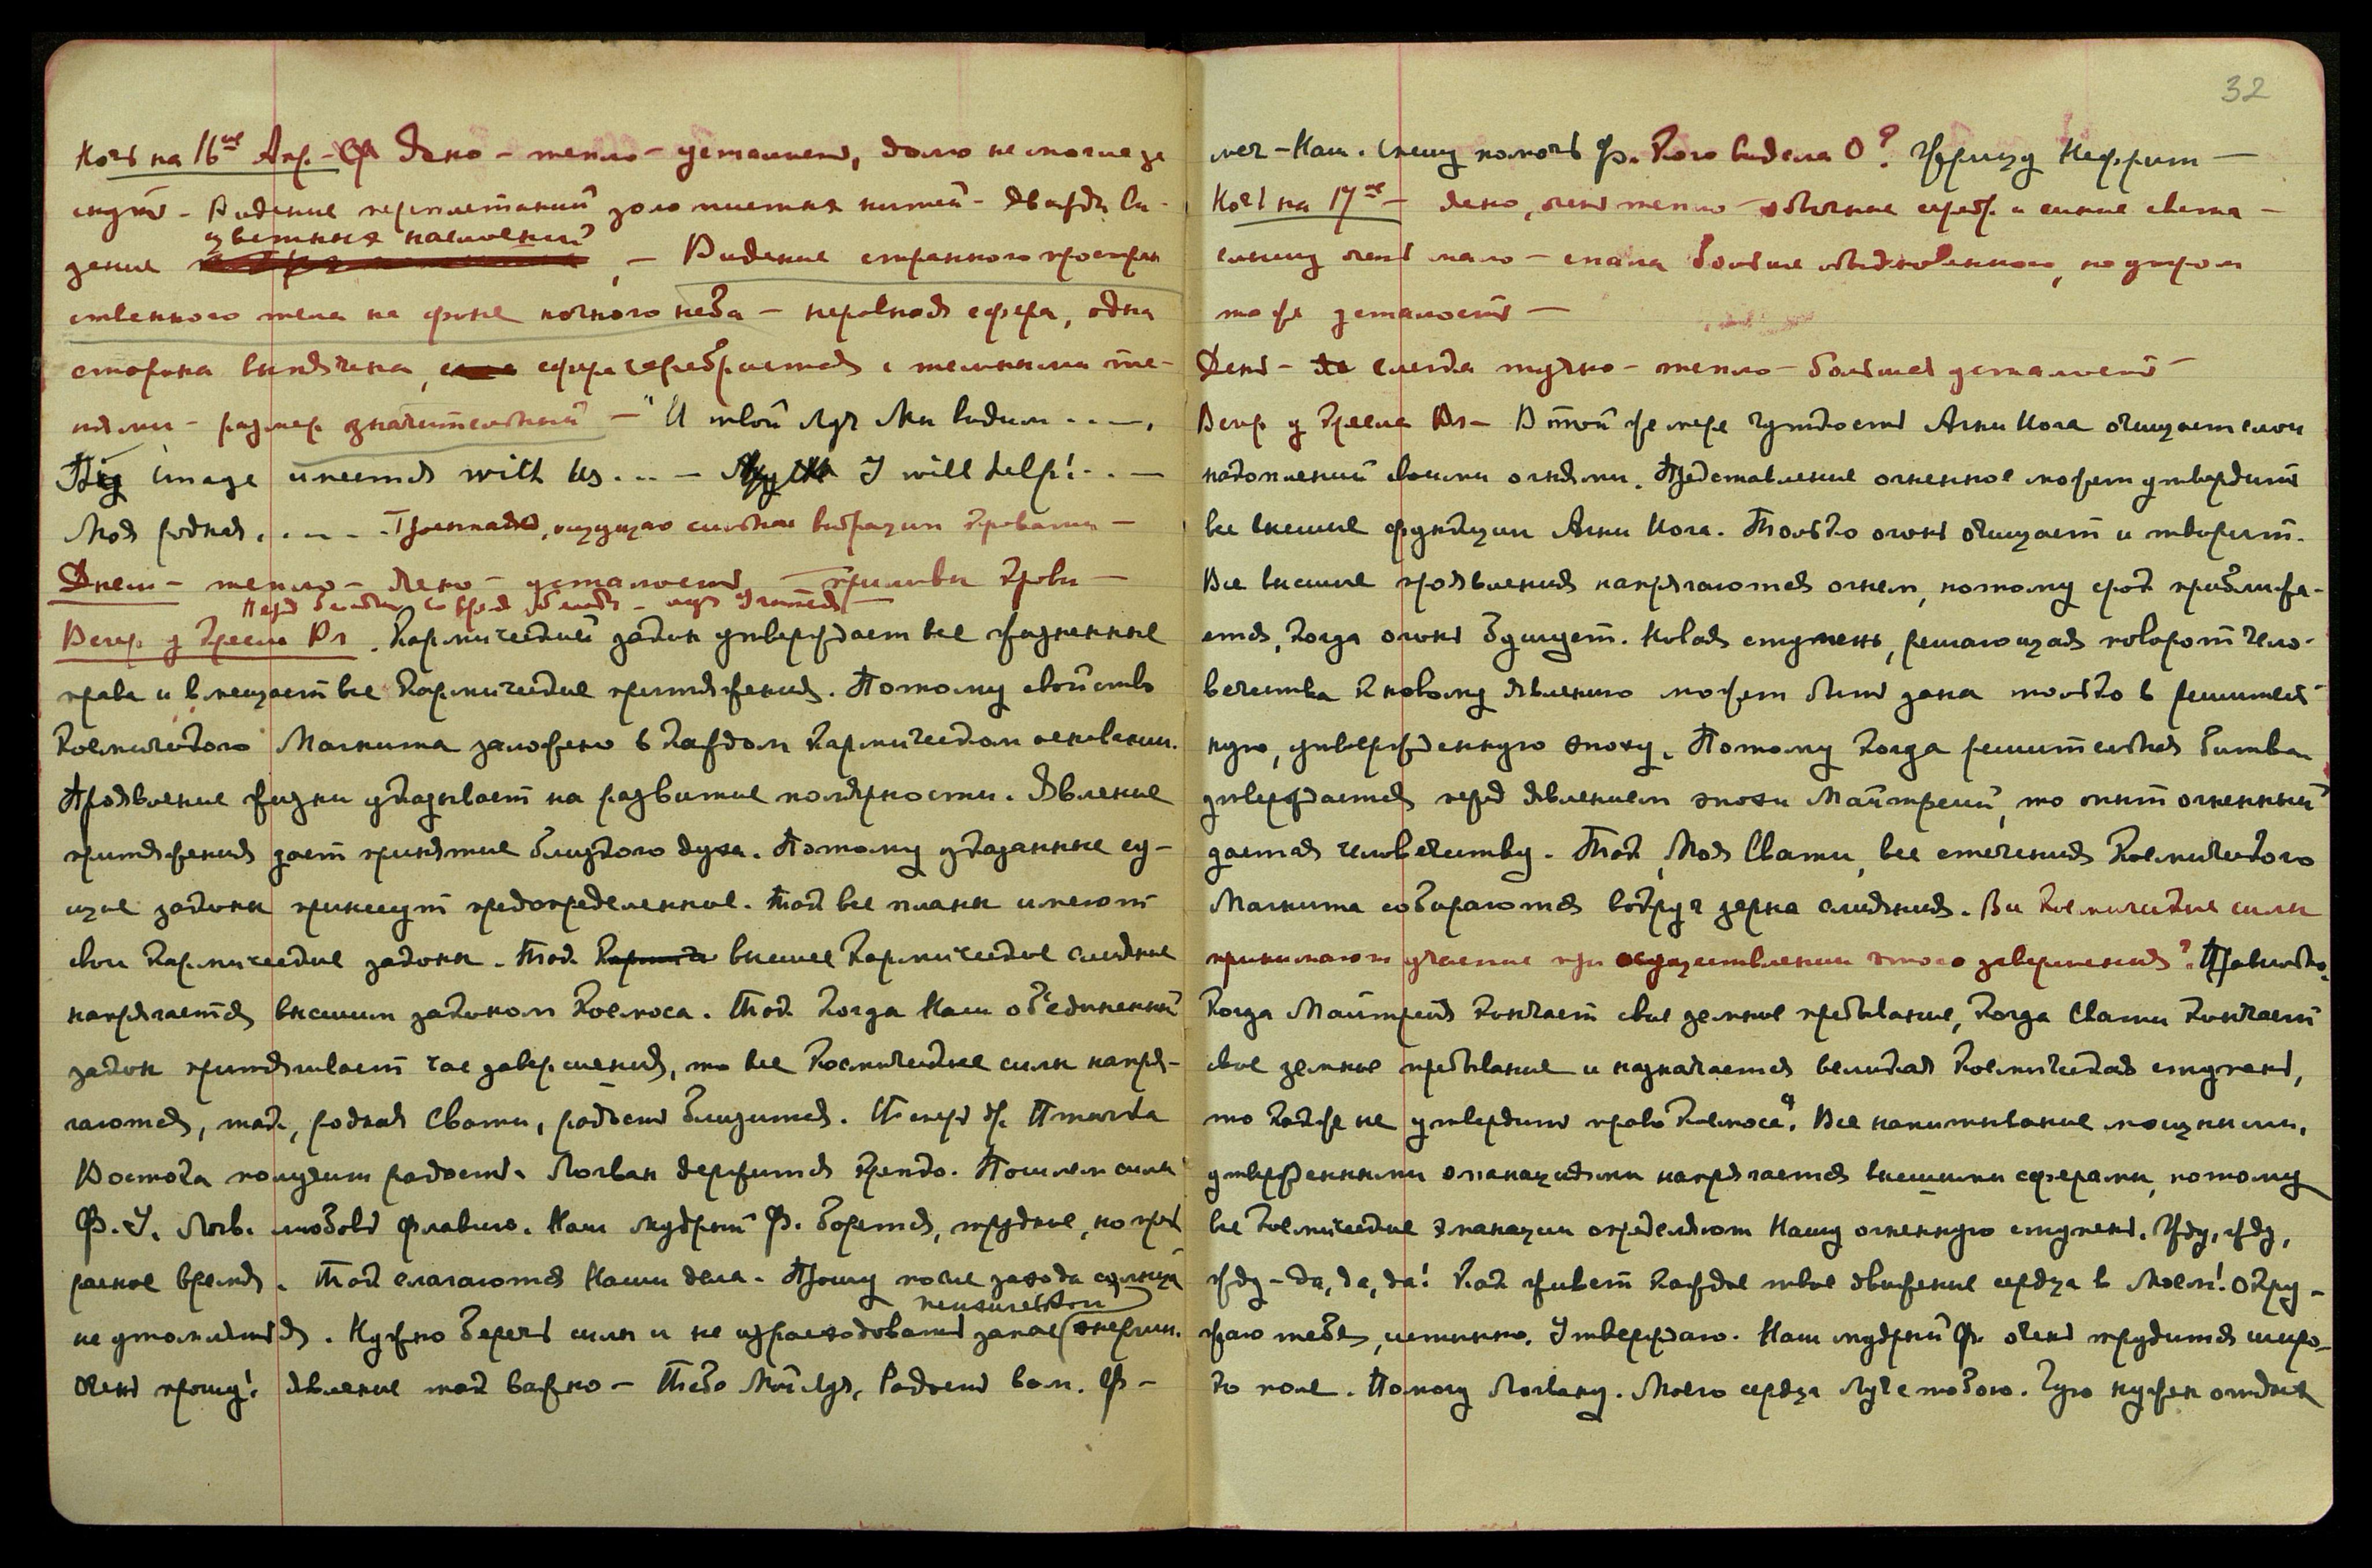 32
Ночь на 16ое Апр. - Ср Ясно - тепло - усталость, долго не могла за
снуть - Видение переплетаний золотистых нитей - Дважды ви-
цветных наслоений
дение , - Видение странного простран
ственного тела на фоне ночного неба - неровная сфера, одна
сторона выпячена, сфера серебристая с темными те-
нями - размер значительный - "И твой Луч Мы видим . . — .
Thy image имеется with Us . . . — I will help! . . —
Моя родная . . . . . ощущаю сильные вибрации кровати —
Днем - тепло - ясно - усталость - приливы крови —
Вечер у Кресла Вл . Кармический закон утверждает все жизненные
права и вмещает все кармические притяжения. Потому свойство
Космического Магнита заложено в каждом кармическом основании.
Проявление жизни указывает на развитие полярности. Явление
притяжения дает принятие близкого духа. Потому указанные су-
щие законы принесут предопределенное. Так все планы имеют
свои кармические законы. Так высшее кармическое слияние
напрягается высшим законом Космоса. Так когда Наш объединенный
закон притягивает час завершения, то все космические силы напря-
гаются, так, родная Свати, радость близится. Теперь др. Птичка
Востока получит радость. Логван держится крепко. Пошлем силы
Ф. У. Логв. любовь Флавию. Наш мудрый Ф. борется, трудное, но пре
расное время. Так слагаются Наши дела. Прошу после захода солнца
не утомляться. Нужно беречь силы и не израсходовать запас энергии.
Очень прошу! явление так важно - Тебе Мой Луч, Радость вам. Ф -
меч - Наш. Спешу помочь Ф. Кого видела О? Жрицу Нефрит —
Ночь на 17ое - Ясно, очень тепло - обычные сереб. и синие света -
слышу очень мало - спала больше обыкновенного, но утром
та же усталость —
День - слегка тучно - тепло - большая усталость -
Вечер у Кресла Вл - В той же мере чуткость Агни Йога очищает слои
накоплений своими огнями. Представление огненное может утвердить
все высшие функции Агни Йога. Только огонь очищает и творит.
Все высшие проявления напрягаются огнем, потому срок приближа-
ется, когда огонь бушует. Новая ступень, решающая поворот чело-
вечества к новому явлению может быть дана только в решитель-
ную, утвержденную эпоху. Потому когда решительная битва
утверждается перед явлением эпохи Майтрейи, то опыт огненный
дается человечеству. Так, Моя Свати, все стечения Космического
Магнита собираются вокруг зерна слияния. Все космические силы
принимают участие при осуществлении этого завершения? Правильно,
когда Майтрейя кончает свое земное пребывание, когда Свати кончает
свое земное пребывание и назначается великая космическая ступень,
то как же не утвердить право Космоса? Все напитывание мощными,
утвержденными эманациями напрягается высшими сферами, потому
все космические эманации определяют Нашу огненную ступень. Жду, жду,
жду - да, да, да! Как живет каждое твое движение сердца в Моем! Окру-
жаю тебя, истинно. Утверждаю. Наш мудрый Ф. очень трудится широ-
ко поле. Помогу Логвану. Моего сердца Луч с тобою. Чую нужен отдых